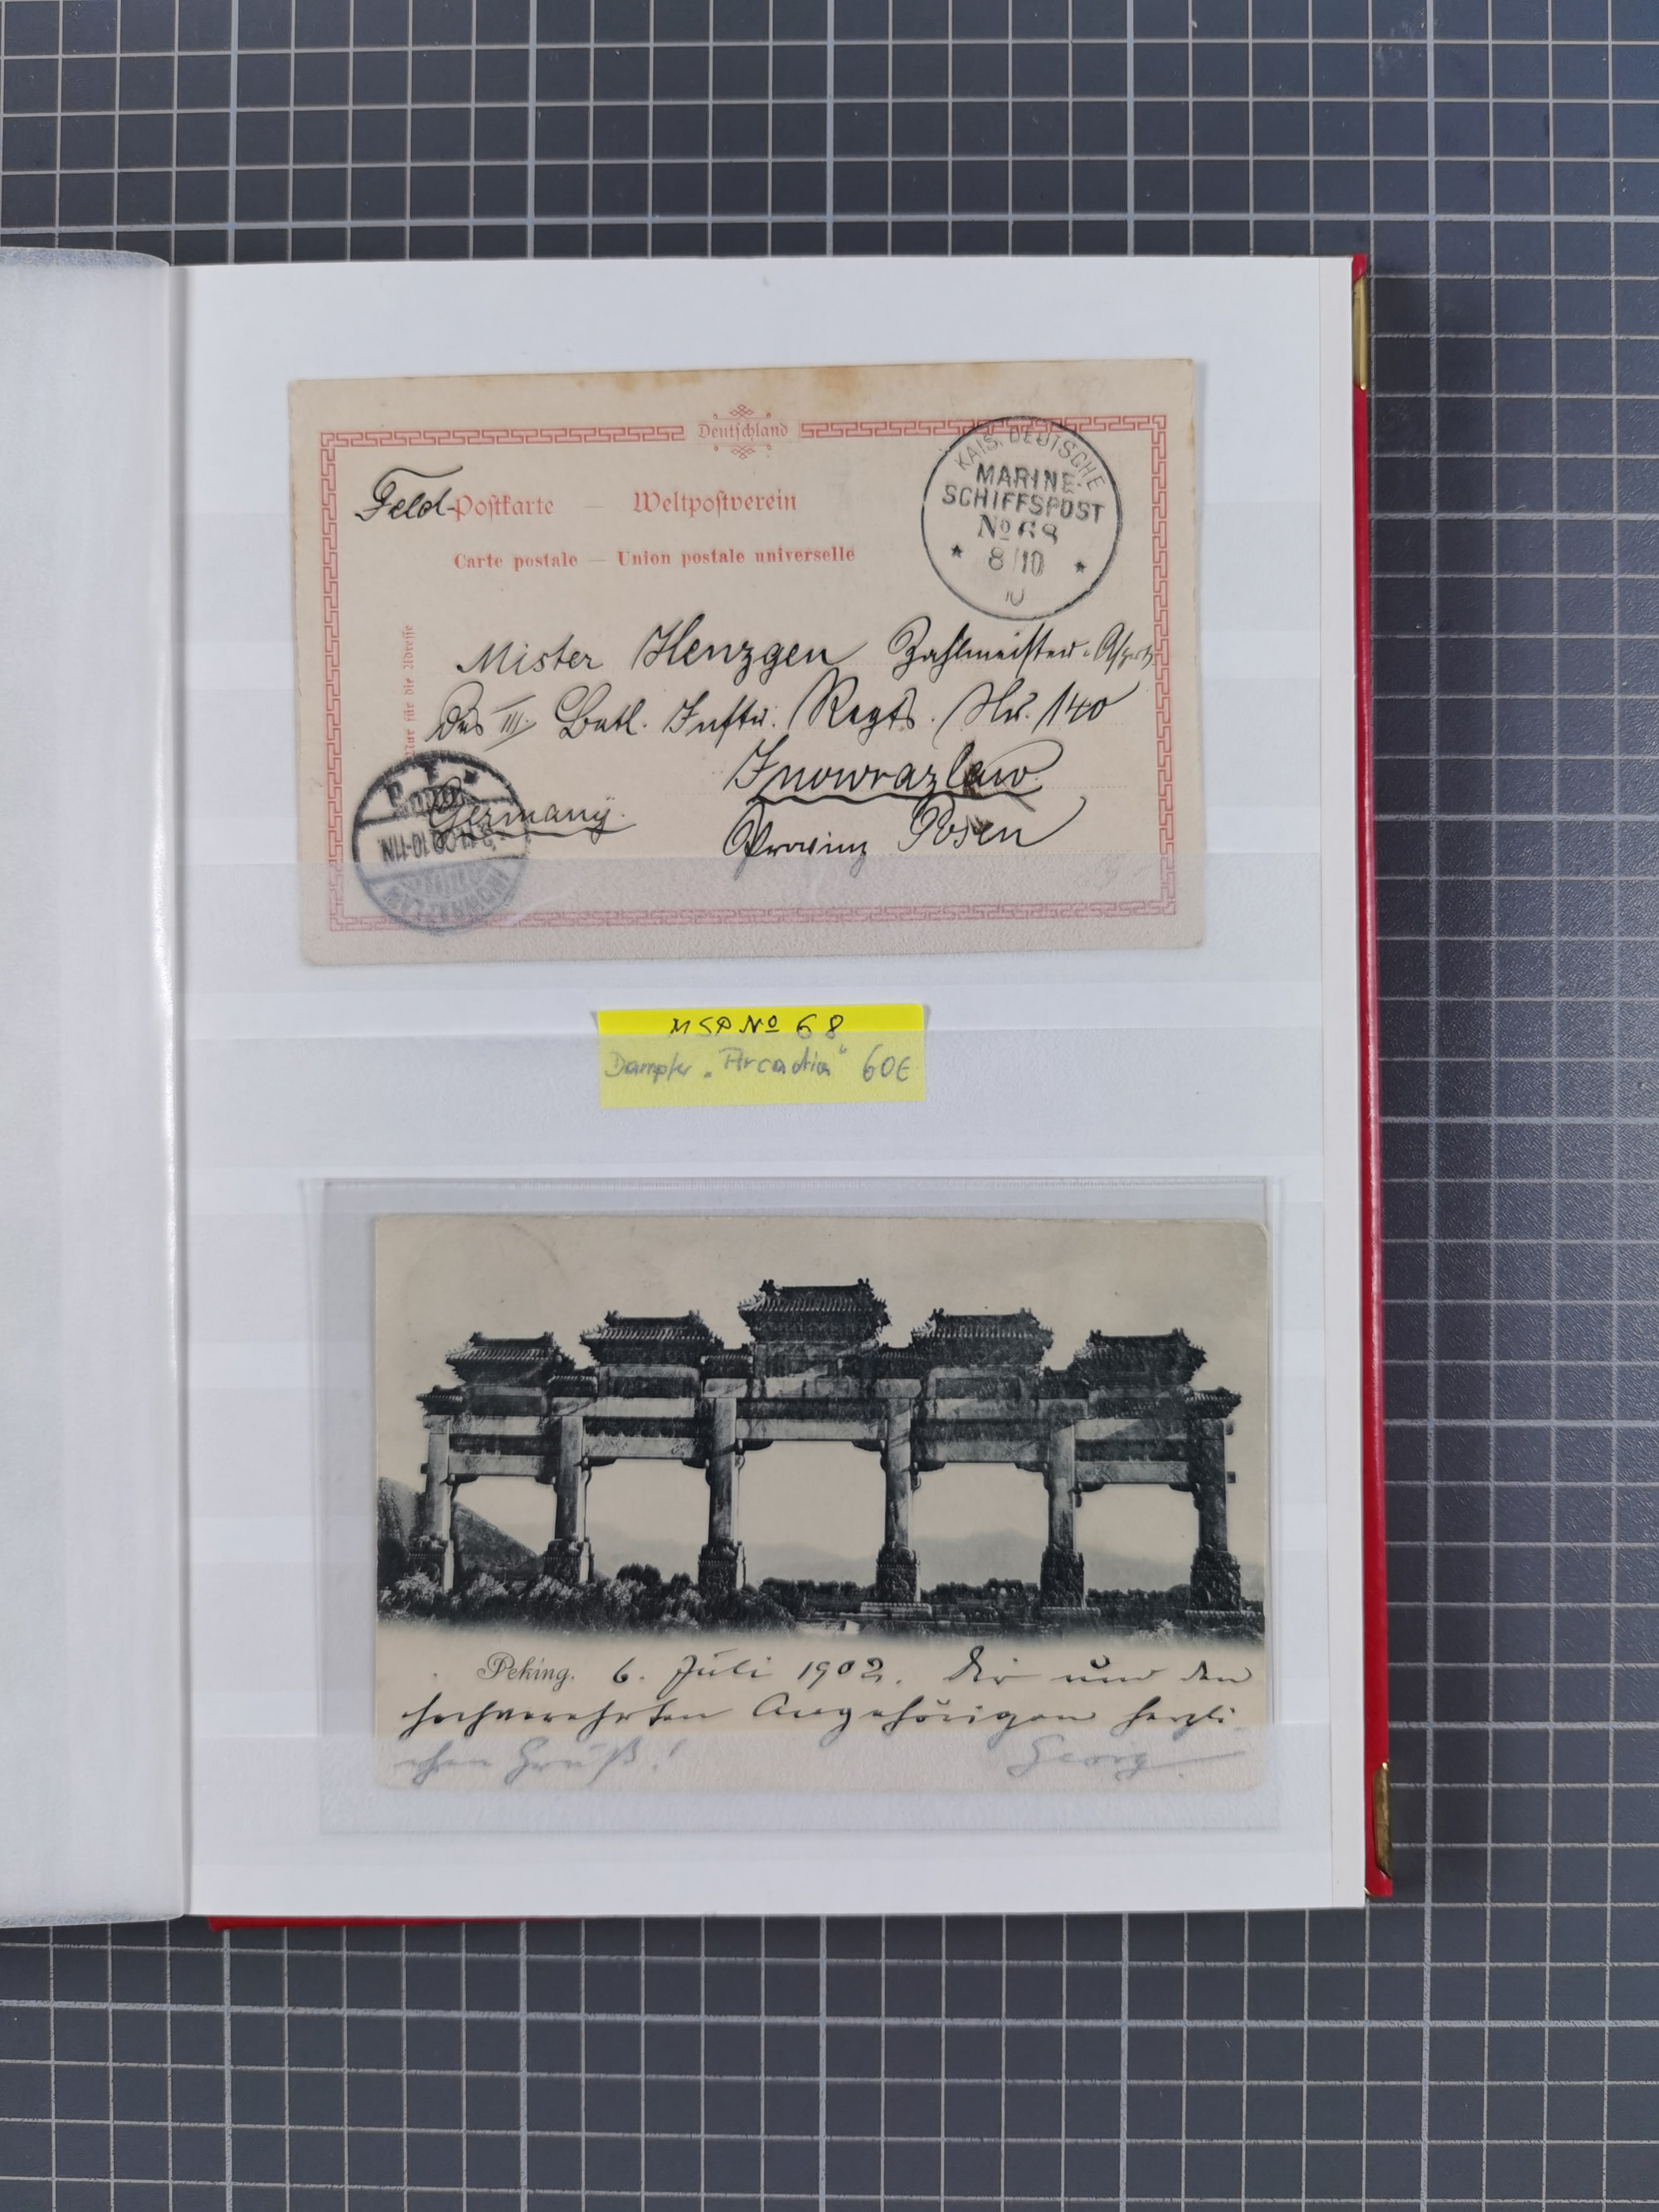 Deutschland
Feld-Postkarte — Weltpostverein
Carte postale — Union postale universelle
KAIS. DEUTSCHE
MARINE-
SCHIFFSPOST
No 68
* 8/10 *
Nur für die Adresse
Mister Henzgen Zahlmeister-
des III. Batl. Inftr. Regts. Nr. 140
Inowrazlaw
Germany.
Provinz Posen
10-11N
INOWRAZLAW
MSP No 68
Dampfer „Arcadia" 60€
Peking. 6. Juli 1902. Dir und den
hochverehrten Angehörigen herzli-
chen Gruß! Georg.